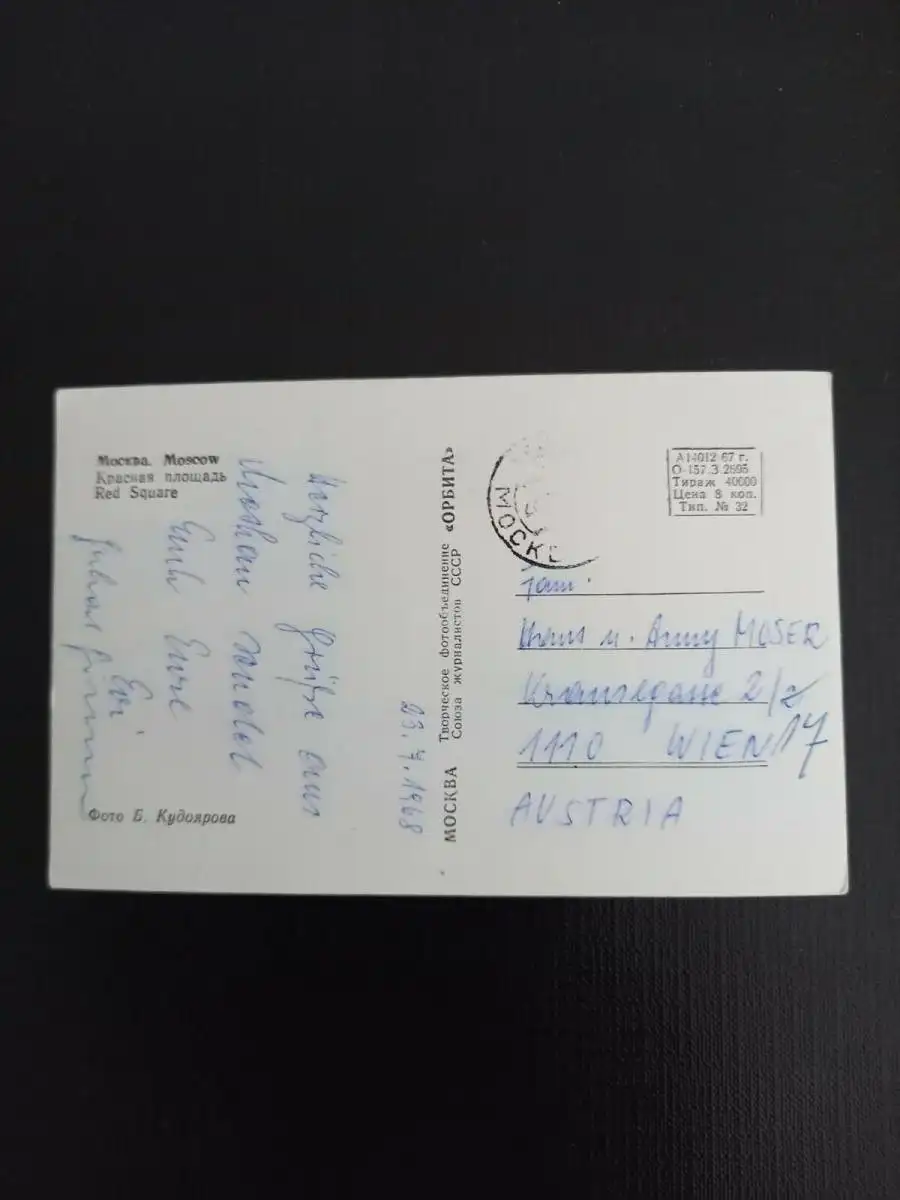 Москва. Moscow
Красная площадь
Red Square
23.7.1968
Herzliche Grüße aus
Moskau sendet
Euch Eure
Evi
Фото Б. Кудоярова
МОСКВА Творческое фотообъединение «ОРБИТА»
Союза журналистов СССР
МОСКВ
А14012 67 г.
О-157.3.2695
Тираж 40000
Цена 8 коп.
Тип. № 32
Fam.
u. Anny MOSER
2/
1110 WIEN 17
AUSTRIA